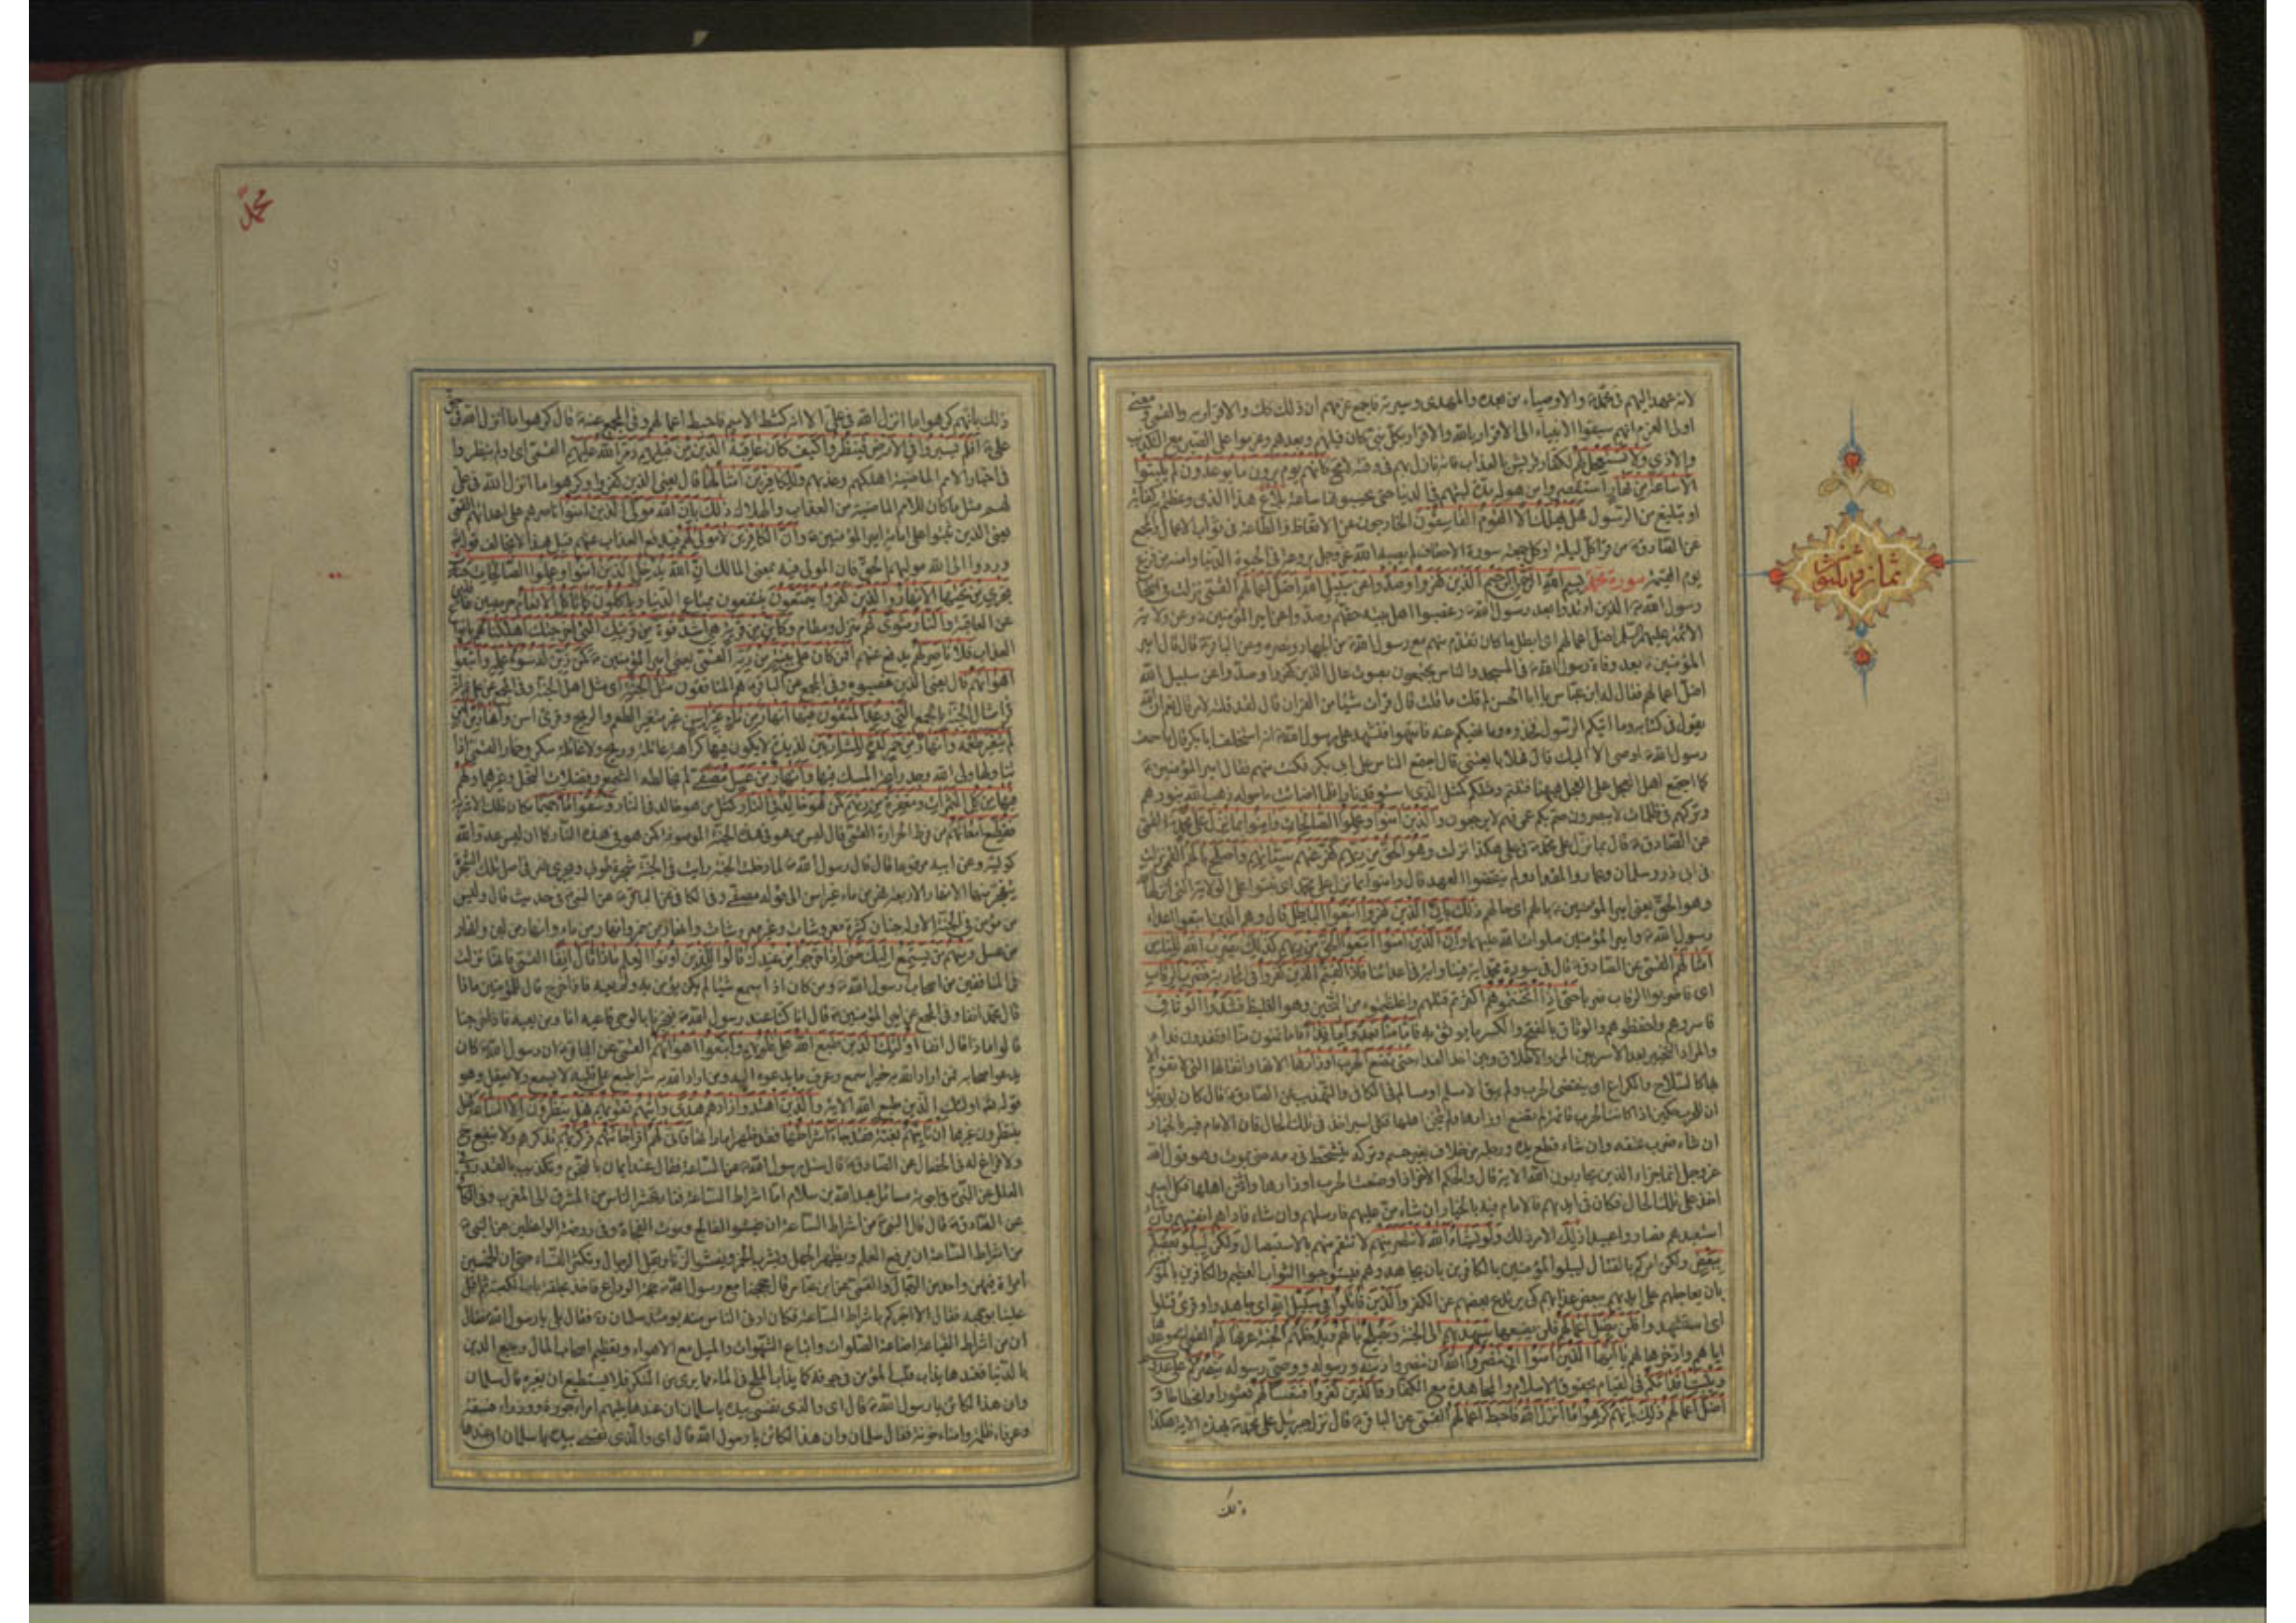 لانه عهد اليهم فى محمد والاوصياء من بعده والمهدى وسيرته فاجمع عزمهم ان ذلك كذلك والاقرار به والقمى معنى
اولى العزم انهم سبقوا الانبياء الى الاقرار بالله والاقرار بكل نبى كان قبلهم وبعدهم وعزموا على الصبر مع التكذيب
والاذى ولا تستعجل لهم لكفار قريش بالعذاب فانه نازل بهم فى وقته لا محالة كانهم يوم يرون ما يوعدون لم يلبثوا
الا ساعة من نهار استقصروا من هوله مدة لبثهم فى الدنيا حتى يحسبونها ساعة بلاغ هذا الذى وعظتم به كفاية
او تبليغ من الرسول فهل يهلك الا القوم الفاسقون الخارجون عن الاتعاظ والطاعة فى ثواب الاعمال والمجمع
عن الصادق من قرأ كل ليلة او كل جمعة سورة الاحقاف لم يصبه الله عز وجل بروعة فى الحيوة الدنيا وامنه من فزع
يوم القيمة سورة محمد بسم الله الرحمن الرحيم الذين كفروا وصدوا عن سبيل الله اضل اعمالهم القمى نزلت فى اصحاب
رسول الله الذين ارتدوا بعد رسول الله وغصبوا اهل بيته حقهم وصدوا عن امير المؤمنين وعن ولاية
الائمة عليهم السلم اضل اعمالهم اى ابطل ما كان تقدم منهم مع رسول الله من الجهاد ونصره وعن الباقر قال قال امير
المؤمنين بعد وفاة رسول الله فى المسجد والناس مجتمعون بصوت عال الذين كفروا وصدوا عن سبيل الله
اضل اعمالهم فقال له ابن عباس يا ابا الحسن لم قلت ما قلت قال قرأت شيئا من القران قال لقد قلته لامر قال نعم ان الله
يقول فى كتابه وما اتيكم الرسول فخذوه وما نهيكم عنه فانتهوا فتشهد على رسول الله انه استخلف ابا بكر قال ما سمعت
رسول الله اوصى الا اليك قال فهلا بايعتنى قال اجتمع الناس على ابى بكر فكنت منهم فقال امير المؤمنين
كما اجتمع اهل العجل على العجل ههنا فتنتم ومثلكم كمثل الذى استوقد نارا فلما اضاءت ما حوله ذهب الله بنورهم
وتركهم فى ظلمات لا يبصرون صم بكم عمى فهم لا يرجعون والذين امنوا وعملوا الصالحات وامنوا بما نزل على محمد القمى
عن الصادق قال بما نزل على محمد فى على هكذا نزلت وهو الحق من ربهم كفر عنهم سيئاتهم واصلح بالهم القمى نزلت
فى ابى ذر وسلمان وعمار والمقداد ولم ينقضوا العهد قال وامنوا بما نزل على محمد اى ثبتوا على الولاية التى انزلها الله
وهو الحق يعنى امير المؤمنين بالهم اى حالهم ذلك بان الذين كفروا اتبعوا الباطل قال وهم الذين اتبعوا اعداء
رسول الله وامير المؤمنين صلوات الله عليهما وان الذين امنوا اتبعوا الحق من ربهم كذلك يضرب الله للناس
امثالهم القمى عن الصادق قال فى سورة محمد اية فينا واية فى اعدائنا فاذا لقيتم الذين كفروا فى المحاربة فضرب الرقاب
اى فاضربوا الرقاب ضربا حتى اذا اثخنتموهم اكثرتم قتلهم واغلظتموه من الثخين وهو الغليظ فشدوا الوثاق
فاسروهم واحفظوهم والوثاق بالفتح والكسر ما يوثق به فاما منا بعد واما فداء فاما تمنون منا او تفدون فداء
والمراد التخيير بعد الاسر بين المن والاطلاق وبين اخذ الفداء حتى تضع الحرب اوزارها الاتها واثقالها التى لا تقوم الا
بها كالسلاح والكراع اى ينقضى الحرب ولم يبق الا مسلم او مسالم فى الكافى والتهذيب عن الصادق قال كان ابى يقول
ان للحرب حكمين اذا كانت الحرب قائمة لم تضع اوزارها ولم يثخن اهلها فكل اسير اخذ فى تلك الحال فان الامام فيه بالخيار
ان شاء ضرب عنقه وان شاء قطع يده ورجله من خلاف بغير حسم وتركه يتشحط فى دمه حتى يموت وهو قول الله
عز وجل انما جزاء الذين يحاربون الله الاية قال والحكم الاخر اذا وضعت الحرب اوزارها واثخن اهلها فكل اسير
اخذ على تلك الحال فكان فى ايديهم فالامام فيه بالخيار ان شاء من عليهم فارسلهم وان شاء فاداهم انفسهم وان شاء
استعبدهم فصاروا عبيدا ذلك الامر ذلك ولو يشاء الله لانتصر منهم لانتقم منهم بالاستيصال ولكن ليبلو بعضكم
ببعض ولكن امركم بالقتال ليبلو المؤمنين بالكافرين بان يجاهدوهم فيستوجبوا الثواب العظيم والكافرين بالمؤمنين
بان يعاجلهم على ايديهم ببعض عذابهم كى يرتدع بعضهم عن الكفر والذين قاتلوا فى سبيل الله اى جاهدوا وقرئ قتلوا
اى استشهدوا فلن يضل اعمالهم فلن يضيعها سيهديهم الى الجنة ويصلح بالهم ويدخلهم الجنة عرفها لهم القمى اى وعدها
اياهم وادخرها لهم يا ايها الذين امنوا ان تنصروا الله ان تنصروا دينه ورسوله ووصى رسوله ينصركم على عدوكم
ويثبت اقدامكم فى القيام بحقوق الاسلام والمجاهدة مع الكفار والذين كفروا فتعسا لهم فعثورا وانحطاطا و
اضل اعمالهم ذلك بانهم كرهوا ما انزل الله فاحبط اعمالهم القمى عن الباقر قال نزل جبرئيل على محمد بهذه الاية هكذا
ذلك
محمد
ذلك بانهم كرهوا ما انزل الله فى على الا انه كشط الاسم فاحبط اعمالهم وفى المجمع عنه قال كرهوا ما انزل الله فى حق
على افلم يسيروا فى الارض فينظروا كيف كان عاقبة الذين من قبلهم دمر الله عليهم القمى اى اولم ينظروا
فى اخبار الامم الماضية اهلكهم وعذبهم وللكافرين امثالها قال يعنى الذين كفروا وكرهوا ما انزل الله فى على
لهم مثل ما كان للامم الماضية من العذاب والهلاك ذلك بان الله مولى الذين امنوا ناصرهم على اعدائهم القمى
يعنى الذين ثبتوا على امامة امير المؤمنين وان الكافرين لا مولى لهم فيدفع العذاب عنهم قيل هذا لا يخالف قوله
وردوا الى الله موليهم الحق فان المولى فيه بمعنى المالك ان الله يدخل الذين امنوا وعملوا الصالحات جنات
تجرى من تحتها الانهار والذين كفروا يتمتعون ينتفعون بمتاع الدنيا وياكلون كما تاكل الانعام حريصين غافلين
عن العاقبة والنار مثوى لهم منزل ومقام وكاين من قرية هى اشد قوة من قريتك التى اخرجتك اهلكناهم بانواع
العذاب فلا ناصر لهم يدفع عنهم افمن كان على بينة من ربه القمى يعنى امير المؤمنين كمن زين له سوء عمله واتبعوا
اهوائهم قال يعنى الذين غصبوه وفى المجمع عن الباقر هم المنافقون مثل الجنة اى مثل اهل الجنة وفى المجمع عن على انه
قرأ امثال الجنة بالجمع التى وعد المتقون فيها انهار من ماء غير اسن غير متغير الطعم والريح وقرئ اسن وانهار من لبن
لم يتغير طعمه وانهار من خمر لذة للشاربين لذيذة لا يكون فيها كراهة غائلة وريح ولا غائلة سكر وخمار القمى اذا
تناولها ولى الله وجد رائحة المسك فيها وانهار من عسل مصفى لم يخالطه الشمع وفضلات النحل وغيرهما ولهم
فيها من كل الثمرات ومغفرة من ربهم كمن هو خالد فى النار كمثل من هو خالد فى النار وسقوا ماء حميما مكان تلك الاشربة
فقطع امعائهم من فرط الحرارة القمى قال ليس من هو فى هذه الجنة الموصوفة كمن هو فى هذه النار كما ان ليس عدو الله
كوليه وعن ابيه مرفوعا قال قال رسول الله لما دخلت الجنة رايت فى الجنة شجرة طوبى ويجرى نهر فى اصل تلك الشجرة
ينفجر منها الانهار الاربعة نهر من ماء غير اسن الى قوله مصفى وفى الكافى عن الباقر عن النبى فى حديث قال وليس
من مؤمن فى الجنة الا وله جنان كثيرة معروشات وغير معروشات وانهار من خمر وانهار من ماء وانهار من لبن وانهار
من عسل ومنهم من يستمع اليك حتى اذا خرجوا من عندك قالوا للذين اوتوا العلم ماذا قال انفا القمى فانها نزلت
فى المنافقين من اصحاب رسول الله ومن كان اذا سمع شيئا لم يكن يؤمن به ولم يعيه فاذا خرج قال للمؤمنين ماذا
قال محمد انفا وفى المجمع عن امير المؤمنين قال انا كنا عند رسول الله فيخبرنا بالوحى فاعيه انا ومن يعيه فاذا خرجنا
قالوا ماذا قال انفا اولئك الذين طبع الله على قلوبهم واتبعوا اهوائهم القمى عن الباقر ان رسول الله كان
يدعو اصحابه فمن اراد الله به خيرا سمع وعرف ما يدعوه اليه ومن اراد الله به شرا طبع على قلبه لا يسمع ولا يعقل وهو
قوله اولئك الذين طبع الله الاية والذين اهتدوا زادهم هدى واتيهم تقويهم فهل ينظرون الا الساعة فهل
ينتظرون غيرها ان تاتيهم بغتة فقد جاء اشراطها فقد ظهر اماراتها فانى لهم اذا جائتهم ذكريهم تذكرهم ولا ينفع ح
ولا فراغ له فى الخصال عن الصادق قال سئل رسول الله عن الساعة فقال عند ايمان بالنجوم وتكذيب بالقدر وفى
العلل عن النبى فى اجوبة مسائل عبد الله بن سلام اما اشراط الساعة فنار تحشر الناس من المشرق الى المغرب وفى الكافى
عن الصادق قال قال النبى من اشراط الساعة ان يفشوا الفالج وموت الفجاة وفى روضة الواعظين عن النبى
من اشراط الساعة ان يرفع العلم ويظهر الجهل ويشرب الخمر ويفشوا الزنا ويقل الرجال وتكثر النساء حتى ان الخمسين
امراة فيهن واحد من الرجال والقمى عن ابن عباس قال حججنا مع رسول الله حجة الوداع فاخذ بحلقة باب الكعبة ثم اقبل
علينا بوجهه فقال الا اخبركم باشراط الساعة فكان ادنى الناس منه يومئذ سلمان ره فقال بلى يا رسول الله فقال
ان من اشراط القيامة اضاعة الصلوات واتباع الشهوات والميل مع الاهواء وتعظيم اصحاب المال وبيع الدين
بالدنيا فعندها يذاب قلب المؤمن فى جوفه كما يذاب الملح فى الماء مما يرى من المنكر فلا يستطيع ان يغيره قال سلمان
وان هذا لكائن يا رسول الله قال اى والذى نفسى بيده يا سلمان ان عندها يليهم امراء جورة ووزراء فسقة
وعرفاء ظلمة وامناء خونة فقال سلمان وان هذا لكائن يا رسول الله قال اى والذى نفسى بيده يا سلمان ان عندها